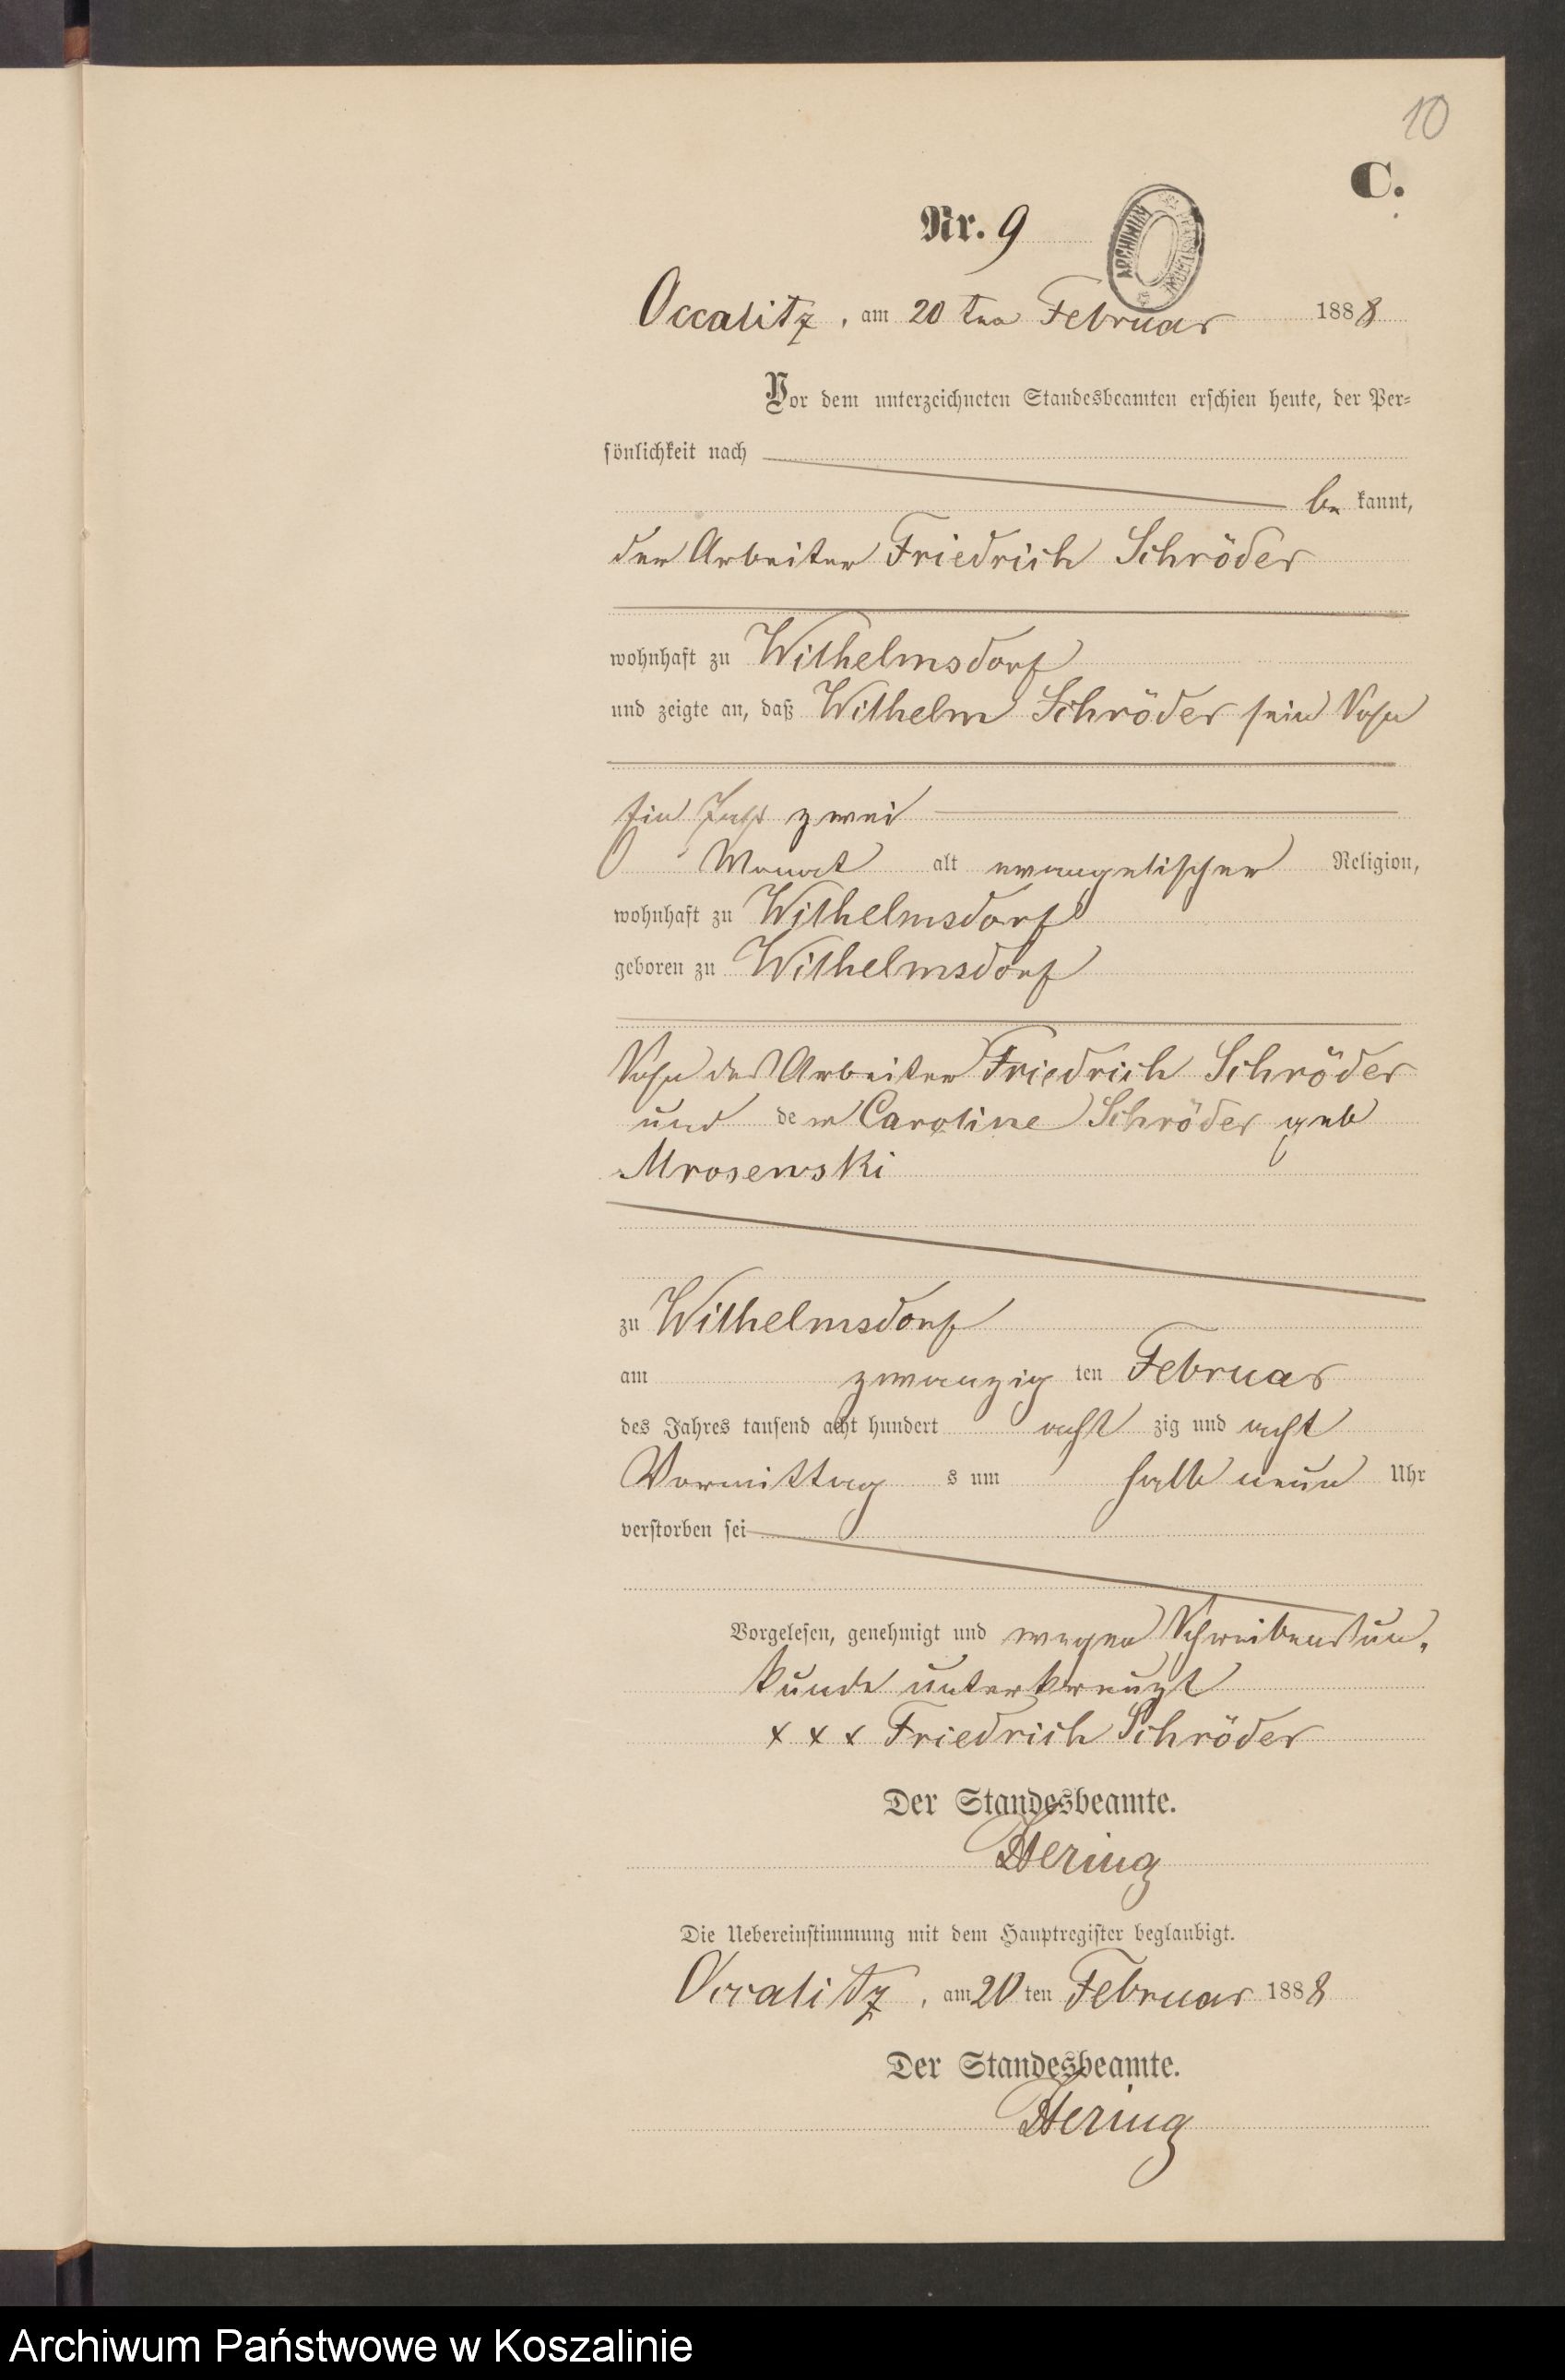 10
C.
Nr. 9
ARCHIWUM
Occalitz, am 20 ten Februar 1888
Vor dem unterzeichneten Standesbeamten erschien heute, der Per-
sönlichkeit nach
be kannt,
der Arbeiter Friedrich Schröder
wohnhaft zu Wilhelmsdorf
und zeigte an, daß Wilhelm Schröder sein Sohn
Ein Jahr zwei
Monat alt evangelischer Religion,
wohnhaft zu Wilhelmsdorf
geboren zu Wilhelmsdorf
Sohn des Arbeiter Friedrich Schröder
und der Caroline Schröder geb
Mrosewski
zu Wilhelmsdorf
am zwanzig ten Februar
des Jahres tausend acht hundert acht zig und acht
Vormittag s um halb neun Uhr
verstorben sei
Vorgelesen, genehmigt und wegen Schreibensun-
kunde unterkreuzt
x x x Friedrich Schröder
Der Standesbeamte.
Hering
Die Uebereinstimmung mit dem Hauptregister beglaubigt.
Occalitz, am 20 ten Februar 1888
Der Standesbeamte.
Hering
Archiwum Państwowe w Koszalinie